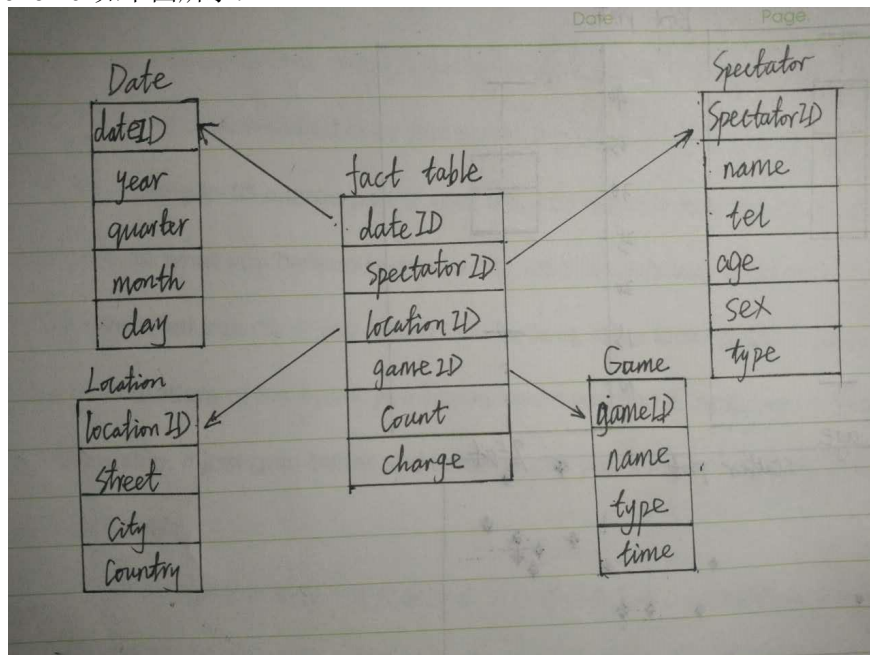 Date
Page.
Date
dateID
year
quarter
month
day
fact table
dateID
SpectatorID
locationID
gameID
Count
charge
Spectator
SpectatorID
name
tel
age
sex
type
Location
locationID
Street
City
Country
Game
gameID
name
type
time